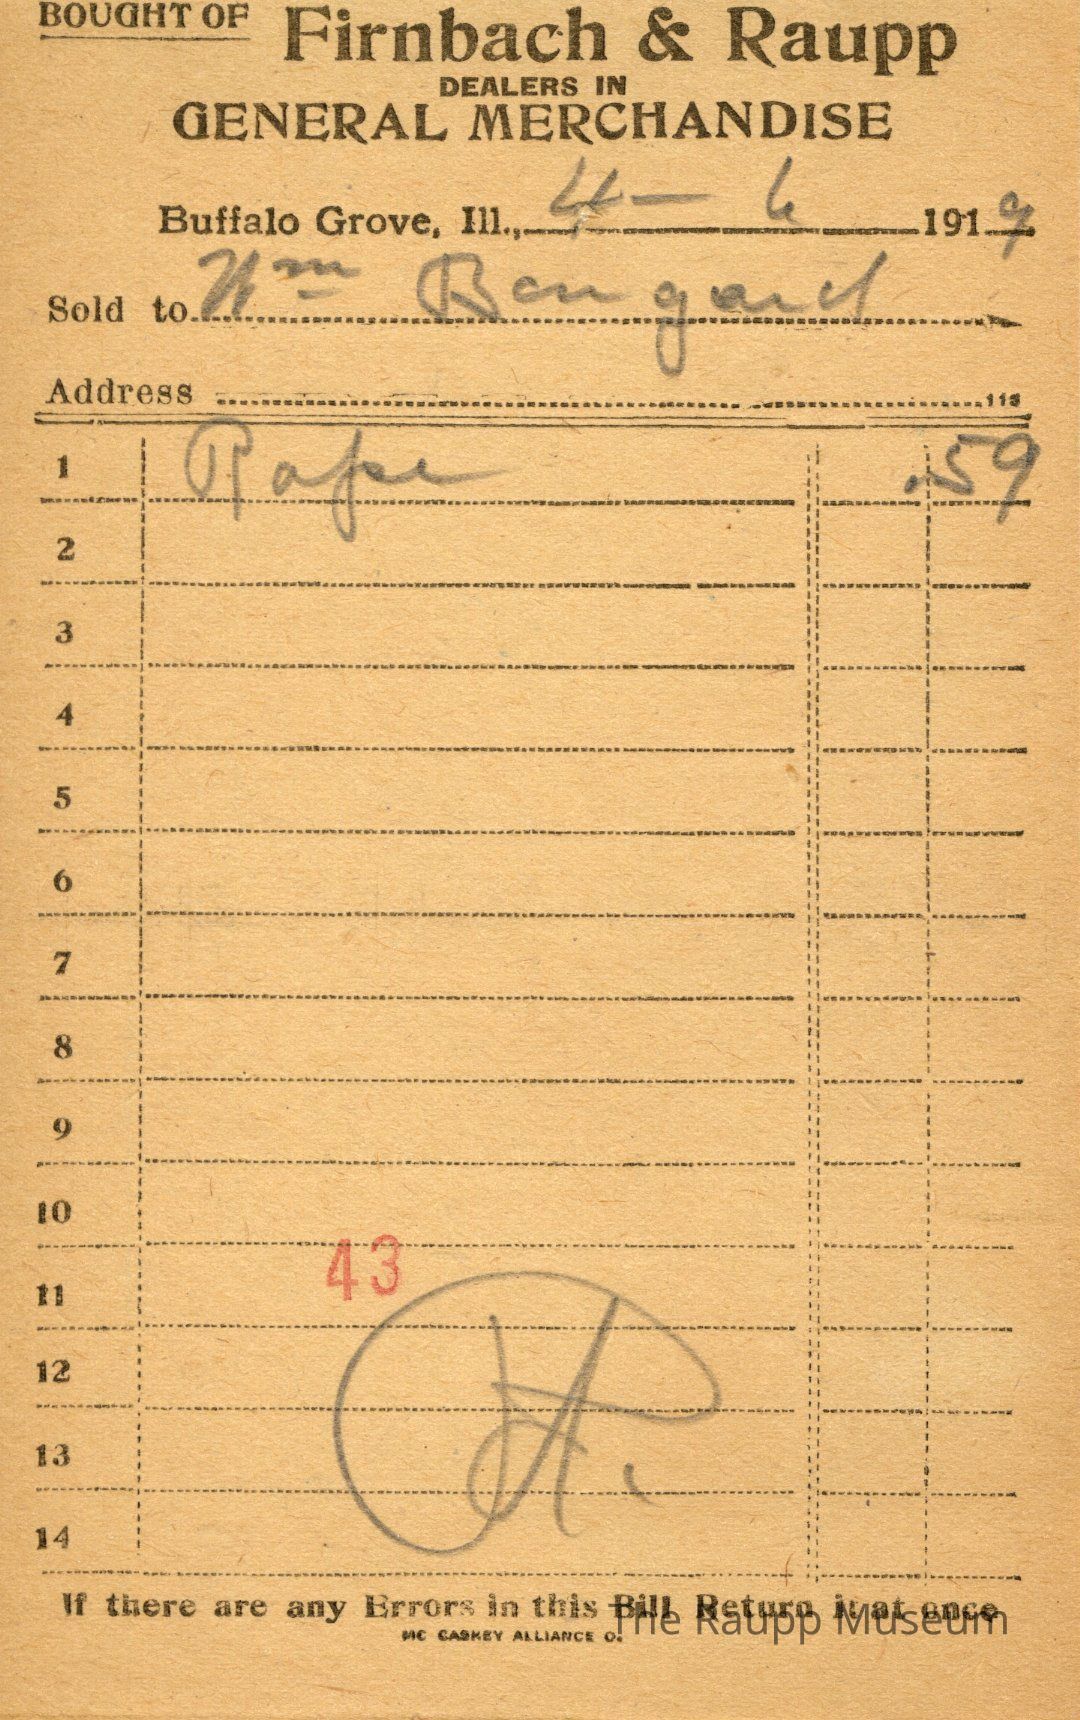 BOUGHT OF Firnbach & Raupp
DEALERS IN
GENERAL MERCHANDISE
Buffalo Grove, Ill., 4 — 6 1919
Sold to Wm Bangard
Address 113
1 Rope .59
2
3
4
5
6
7
8
9
10
43
11
12
13
14
If there are any Errors in this Bill Return it at once
MC CASKEY ALLIANCE O.
The Raupp Museum